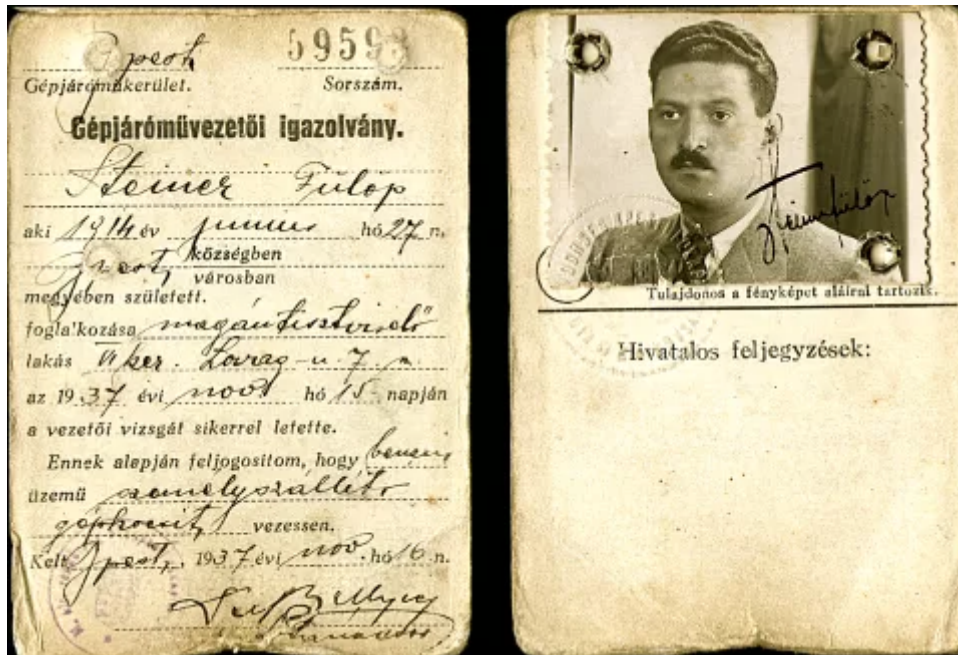 Bpest
5959
Gépjáróműkerület. Sorszám.
Gépjárómüvezetői igazolvány.
Steiner Fülöp
aki 1914 év junius hó 27 n.
Bpest községben
városban
megyében született.
foglalkozása magántisztviselő
lakás VI ker. Lovag-u. 7
az 1937 évi nov. hó 15 napján
a vezetői vizsgát sikerrel letette.
Ennek alapján feljogositom, hogy benzin
üzemü személyszállitó
gépkocsit vezessen.
Kelt Bpest, 1937 évi nov. hó 16 n.
Steiner Fülöp
Tulajdonos a fényképet aláirni tartozik.
Hivatalos feljegyzések: